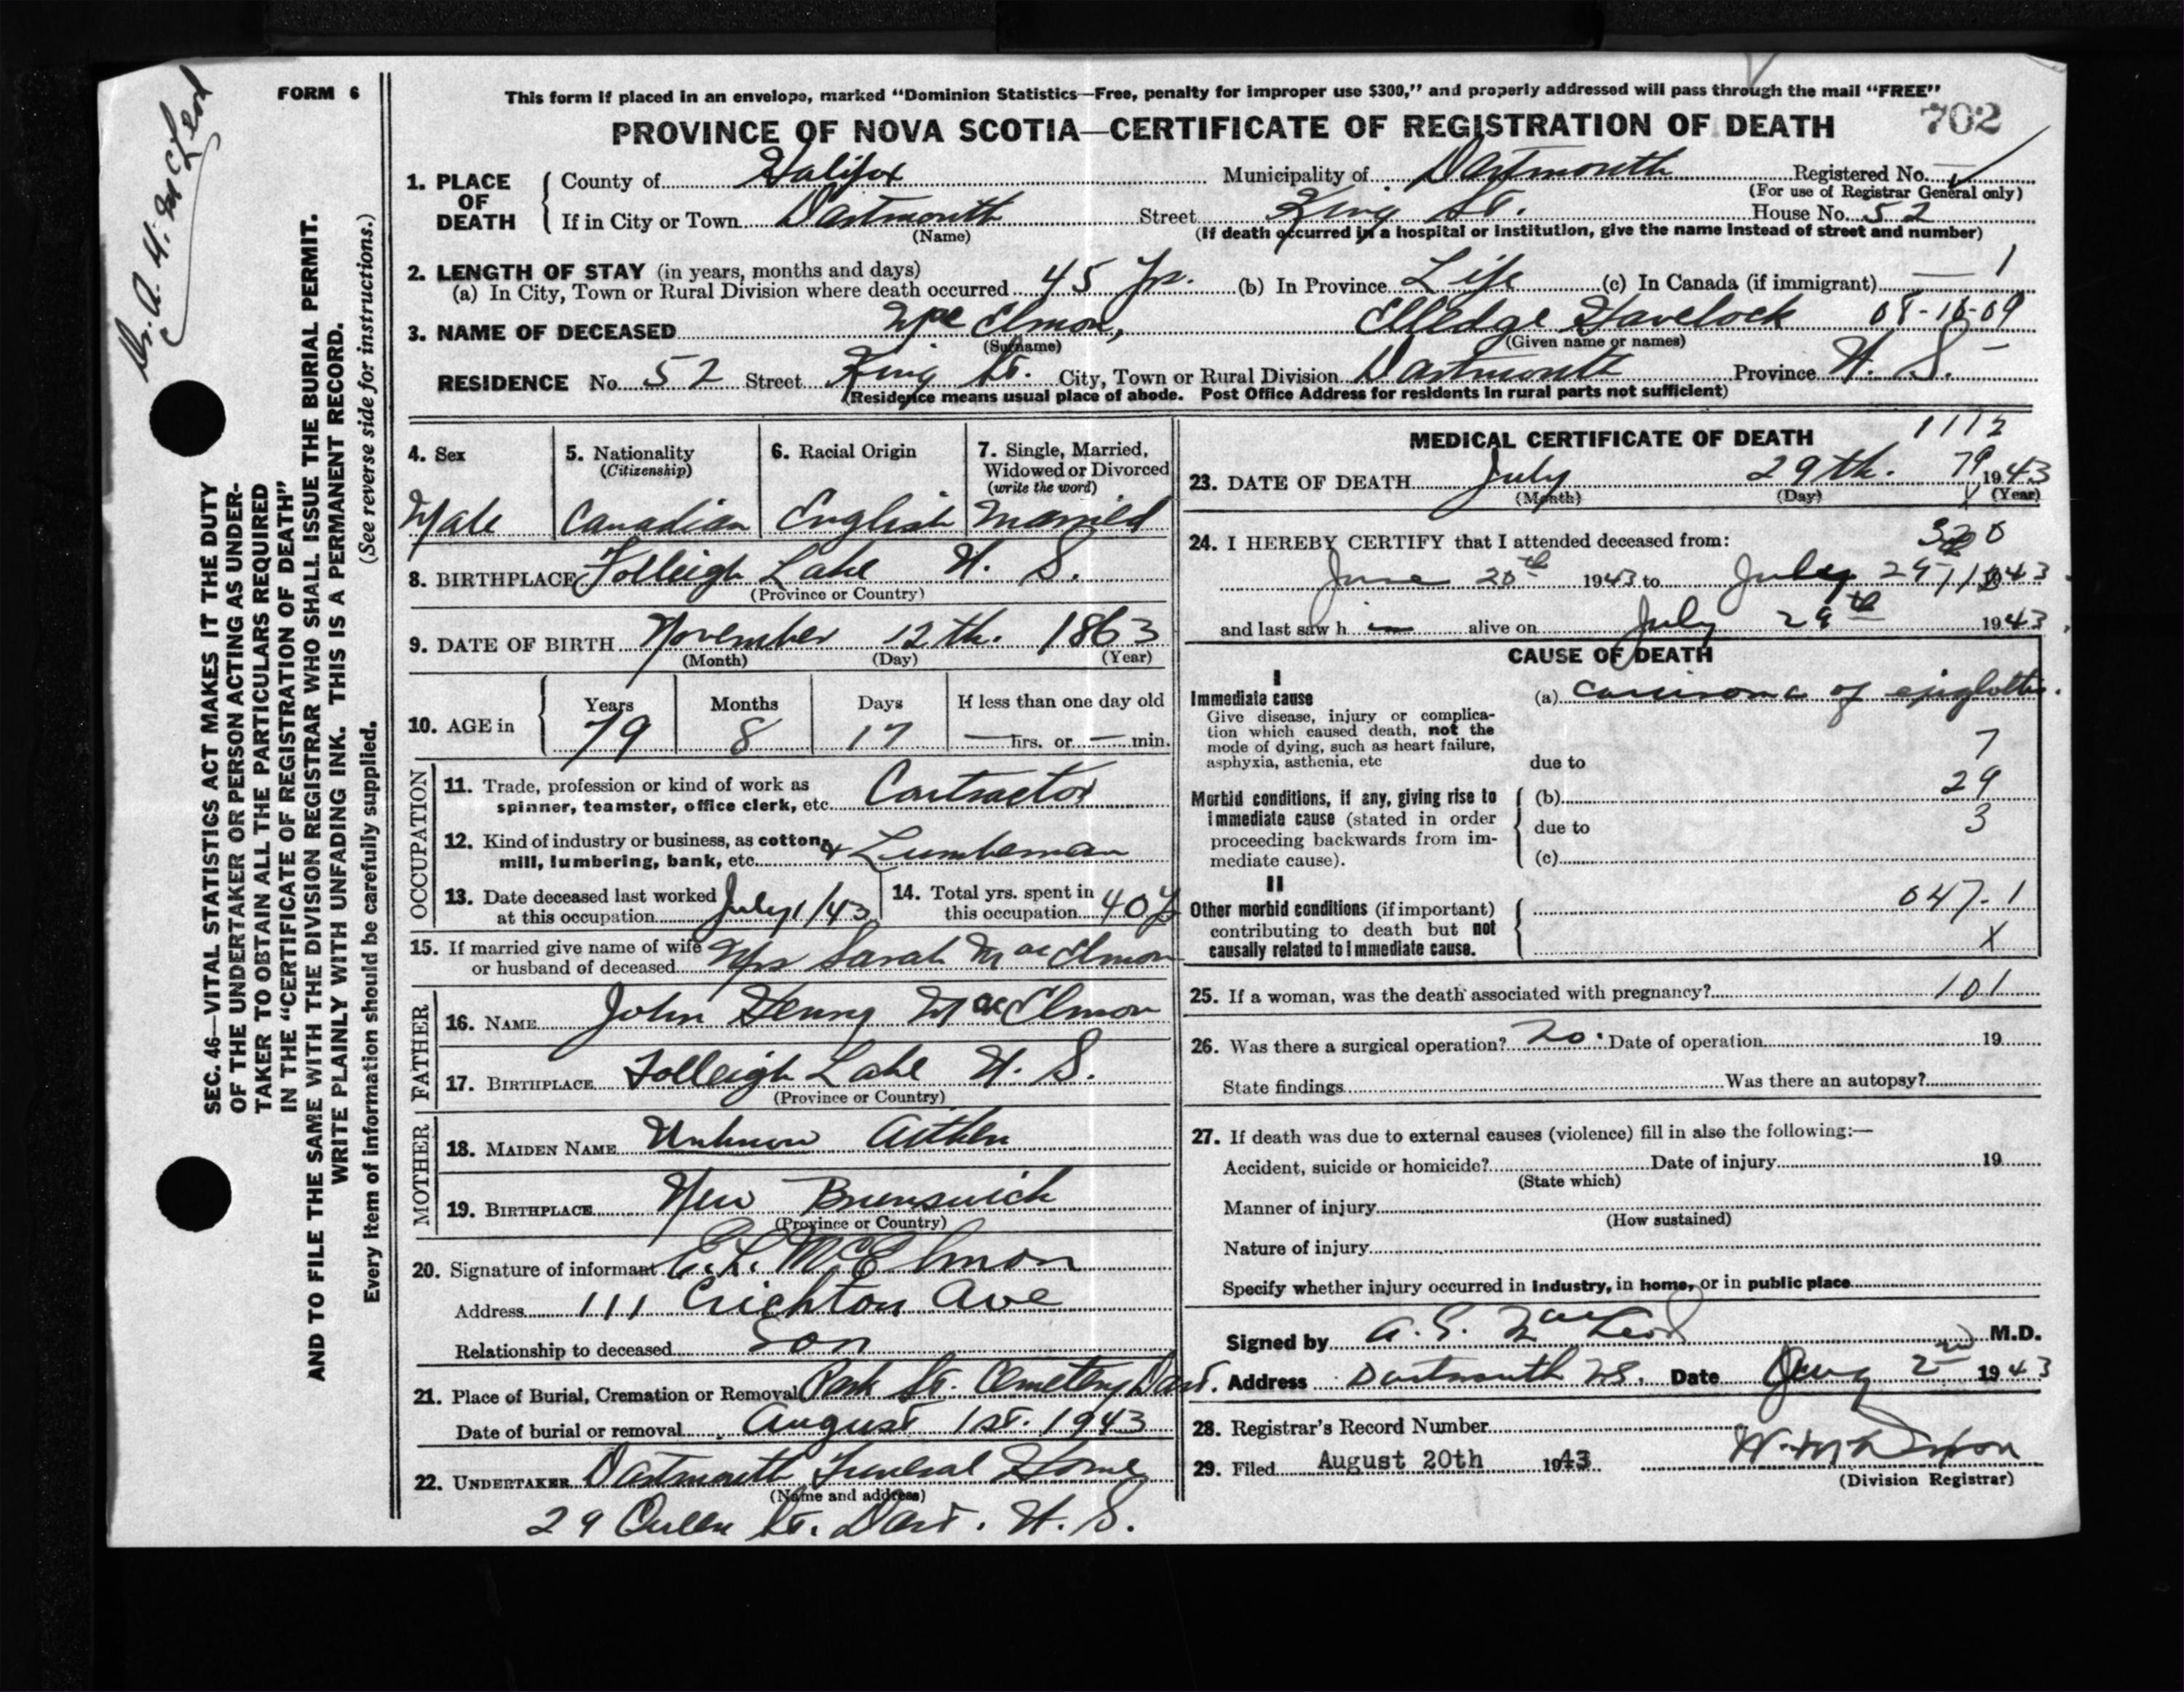 FORM 6
Dr. A. H. McLeod
SEC. 46—VITAL STATISTICS ACT MAKES IT THE DUTY
OF THE UNDERTAKER OR PERSON ACTING AS UNDER-
TAKER TO OBTAIN ALL THE PARTICULARS REQUIRED
IN THE "CERTIFICATE OF REGISTRATION OF DEATH"
AND TO FILE THE SAME WITH THE DIVISION REGISTRAR WHO SHALL ISSUE THE BURIAL PERMIT.
WRITE PLAINLY WITH UNFADING INK. THIS IS A PERMANENT RECORD.
Every item of information should be carefully supplied. (See reverse side for instructions.)
This form if placed in an envelope, marked "Dominion Statistics—Free, penalty for improper use $300," and properly addressed will pass through the mail "FREE"
PROVINCE OF NOVA SCOTIA—CERTIFICATE OF REGISTRATION OF DEATH 702
1. PLACE OF DEATH County of Halifax Municipality of Dartmouth Registered No.
(For use of Registrar General only)
If in City or Town Dartmouth Street King St. House No. 52
(Name) (If death occurred in a hospital or institution, give the name instead of street and number)
2. LENGTH OF STAY (in years, months and days)
(a) In City, Town or Rural Division where death occurred 45 yr. (b) In Province Life (c) In Canada (if immigrant) — 1
3. NAME OF DECEASED MacElmon, Elledge Havelock 08-16-09
(Surname) (Given name or names)
RESIDENCE No. 52 Street King St. City, Town or Rural Division Dartmouth Province N. S.
(Residence means usual place of abode. Post Office Address for residents in rural parts not sufficient)
4. Sex Male
5. Nationality (Citizenship) Canadian
6. Racial Origin English
7. Single, Married, Widowed or Divorced (write the word) Married
8. BIRTHPLACE Folleigh Lake N. S.
(Province or Country)
9. DATE OF BIRTH November 12th. 1863
(Month) (Day) (Year)
10. AGE in Years Months Days If less than one day old
79 8 17 — hrs. or — min.
OCCUPATION
11. Trade, profession or kind of work as
spinner, teamster, office clerk, etc. Contractor
12. Kind of industry or business, as cotton
mill, lumbering, bank, etc. & Lumberman
13. Date deceased last worked
at this occupation July 1/43
14. Total yrs. spent in
this occupation 40 y
15. If married give name of wife
or husband of deceased Mrs Sarah MacElmon
FATHER
16. NAME John Henry MacElmon
17. BIRTHPLACE Folleigh Lake N. S.
(Province or Country)
MOTHER
18. MAIDEN NAME Unknown Aitken
19. BIRTHPLACE New Brunswick
(Province or Country)
20. Signature of informant E. L. McElmon
Address 111 Crichton Ave
Relationship to deceased Son
21. Place of Burial, Cremation or Removal Park St. Cemetery Dart.
Date of burial or removal August 1st. 1943
22. UNDERTAKER Dartmouth Funeral Home
(Name and address)
29 Queen St. Dart. N. S.
MEDICAL CERTIFICATE OF DEATH 1112
23. DATE OF DEATH July 29th. 79 1943
(Month) (Day) (Year)
24. I HEREBY CERTIFY that I attended deceased from:
June 20th 1943 to July 29 1943
and last saw h im alive on July 29th 1943
CAUSE OF DEATH
I
Immediate cause (a) carcinoma of epiglottis.
Give disease, injury or complica-
tion which caused death, not the
mode of dying, such as heart failure,
asphyxia, asthenia, etc due to 7
Morbid conditions, if any, giving rise to (b) 29
immediate cause (stated in order due to 3
proceeding backwards from im-
mediate cause). (c)
II
Other morbid conditions (if important) 047-1
contributing to death but not
causally related to immediate cause. X
25. If a woman, was the death associated with pregnancy? 101
26. Was there a surgical operation? no. Date of operation 19
State findings Was there an autopsy?
27. If death was due to external causes (violence) fill in also the following:—
Accident, suicide or homicide? Date of injury 19
(State which)
Manner of injury
(How sustained)
Nature of injury
Specify whether injury occurred in industry, in home, or in public place
Signed by A. G. MacLeod M.D.
Address Dartmouth NS. Date Aug 2nd 1943
28. Registrar's Record Number
29. Filed August 20th 1943
(Division Registrar)